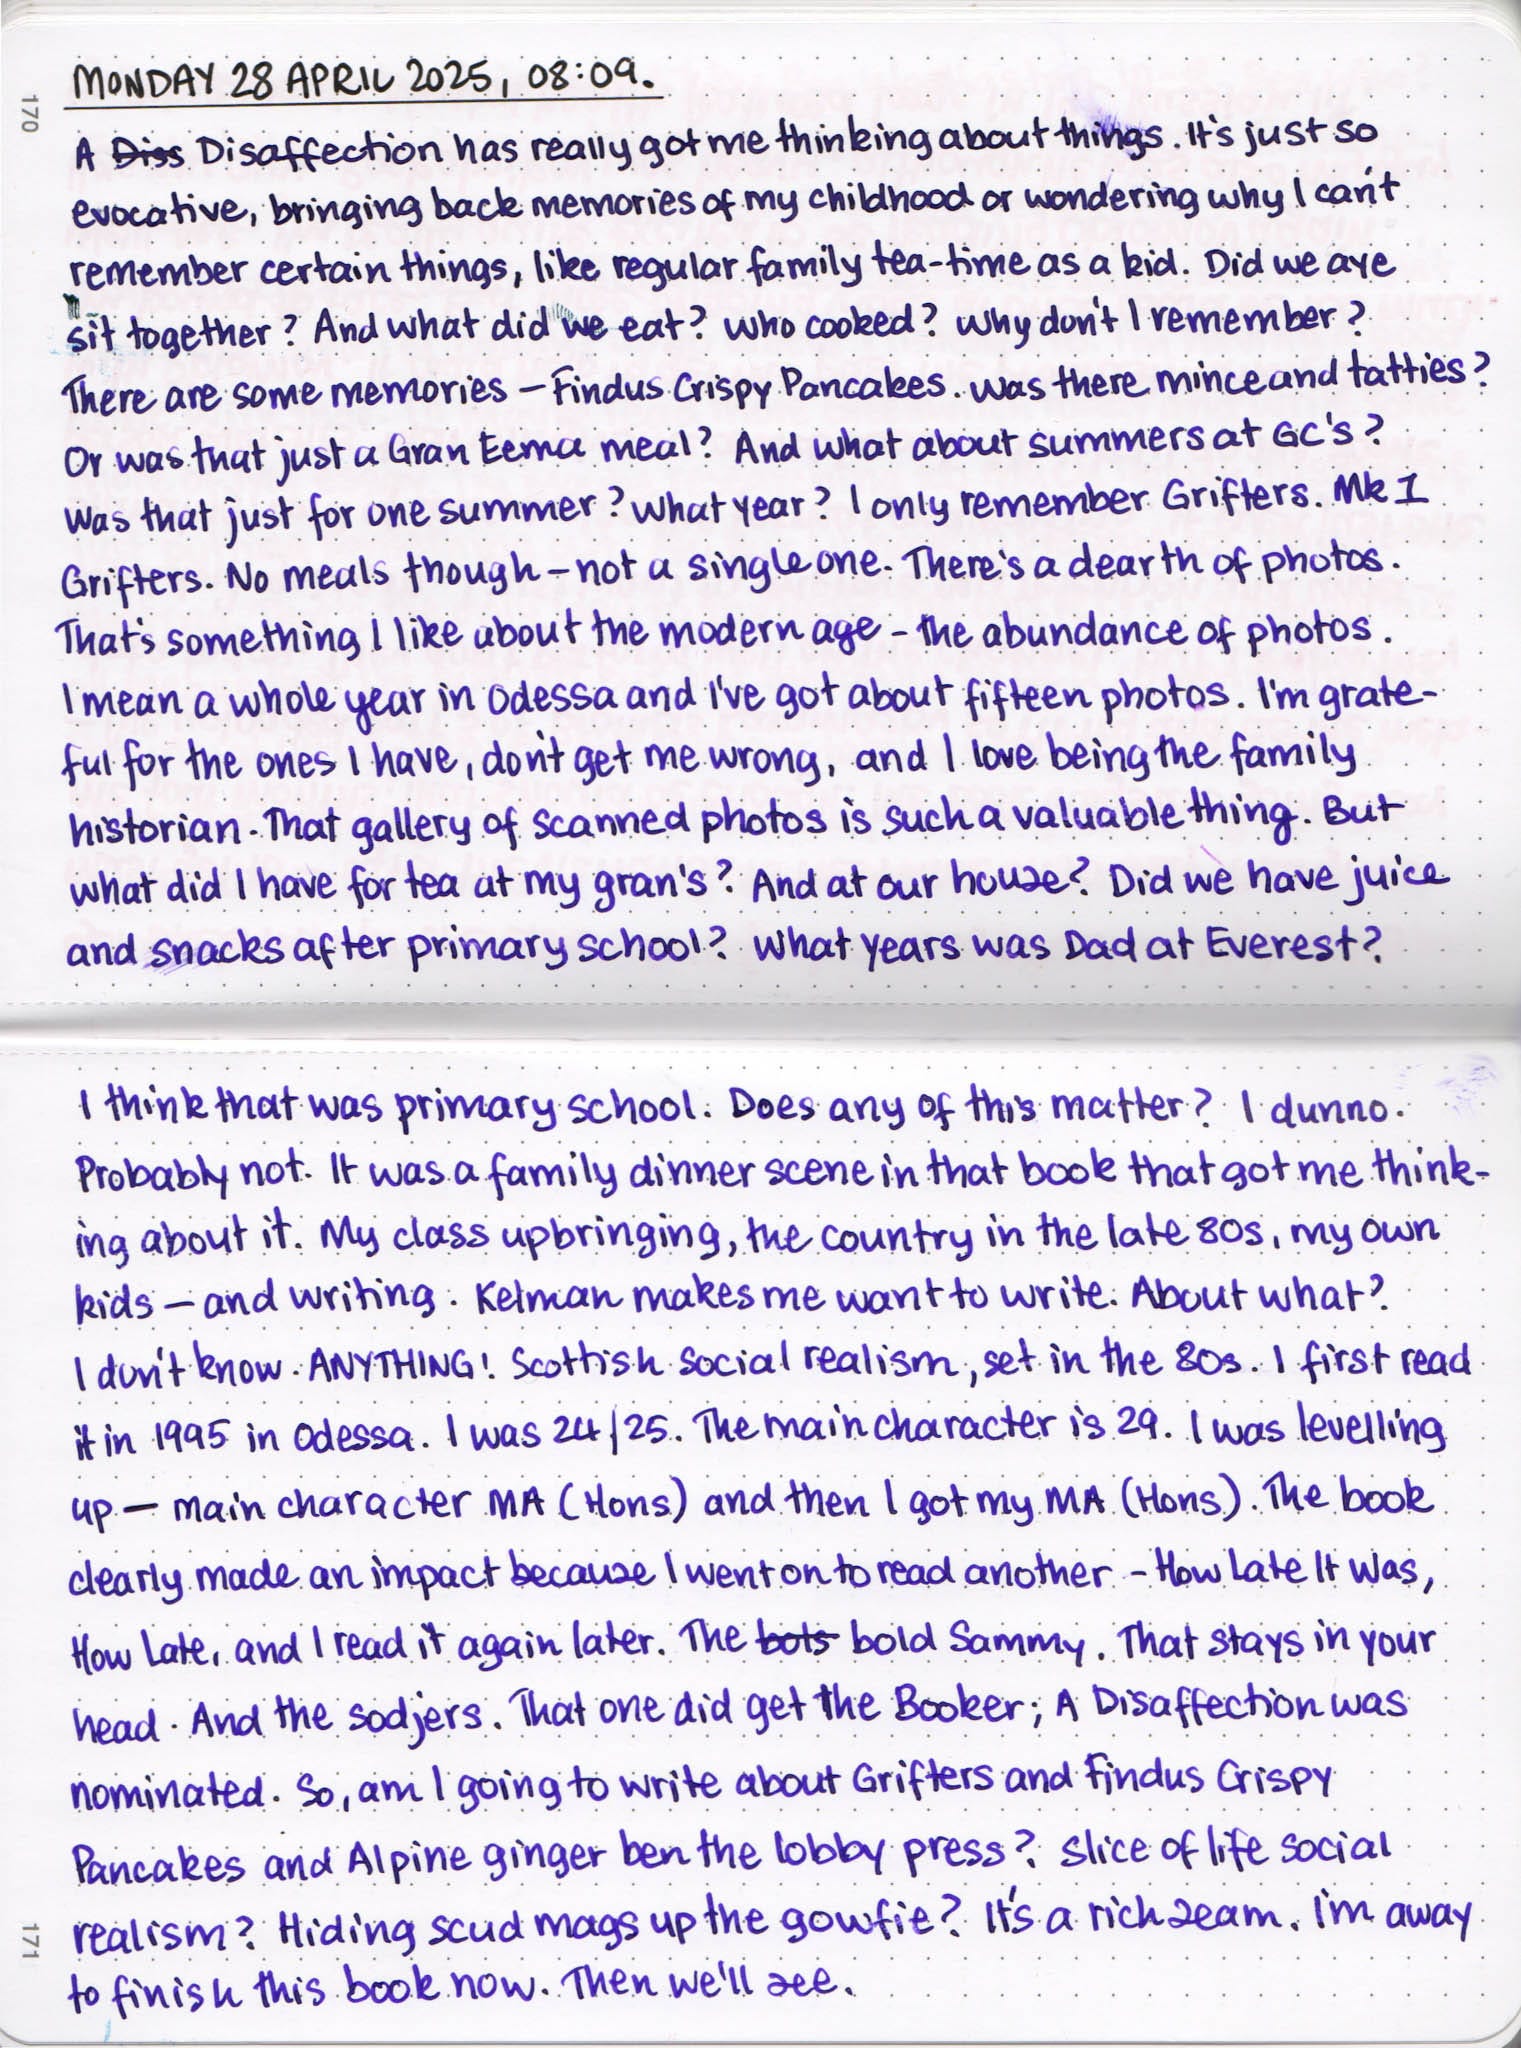 MONDAY 28 APRIL 2025, 08:09.
170
A Diss Disaffection has really got me thinking about things. It's just so
evocative, bringing back memories of my childhood or wondering why I can't
remember certain things, like regular family tea-time as a kid. Did we aye
sit together? And what did we eat? Who cooked? Why don't I remember?
There are some memories – Findus Crispy Pancakes. Was there mince and tatties?
Or was that just a Gran Eema meal? And what about summers at GC's?
Was that just for one summer? What year? I only remember Grifters. Mk 1
Grifters. No meals though – not a single one. There's a dearth of photos.
That's something I like about the modern age – the abundance of photos.
I mean a whole year in Odessa and I've got about fifteen photos. I'm grate-
ful for the ones I have, don't get me wrong, and I love being the family
historian. That gallery of scanned photos is such a valuable thing. But
what did I have for tea at my gran's? And at our house? Did we have juice
and snacks after primary school? What years was Dad at Everest?
I think that was primary school. Does any of this matter? I dunno.
Probably not. It was a family dinner scene in that book that got me think-
ing about it. My class upbringing, the country in the late 80s, my own
kids – and writing. Kelman makes me want to write. About what?
I don't know. ANYTHING! Scottish social realism, set in the 80s. I first read
it in 1995 in Odessa. I was 24/25. The main character is 29. I was levelling
up – main character MA (Hons) and then I got my MA (Hons). The book
clearly made an impact because I went on to read another – How Late It Was,
How Late, and I read it again later. The bots bold Sammy. That stays in your
head. And the sodjers. That one did get the Booker; A Disaffection was
nominated. So, am I going to write about Grifters and Findus Crispy
Pancakes and Alpine ginger ben the lobby press? Slice of life social
realism? Hiding scud mags up the gowfie? It's a rich seam. I'm away
to finish this book now. Then we'll see.
171